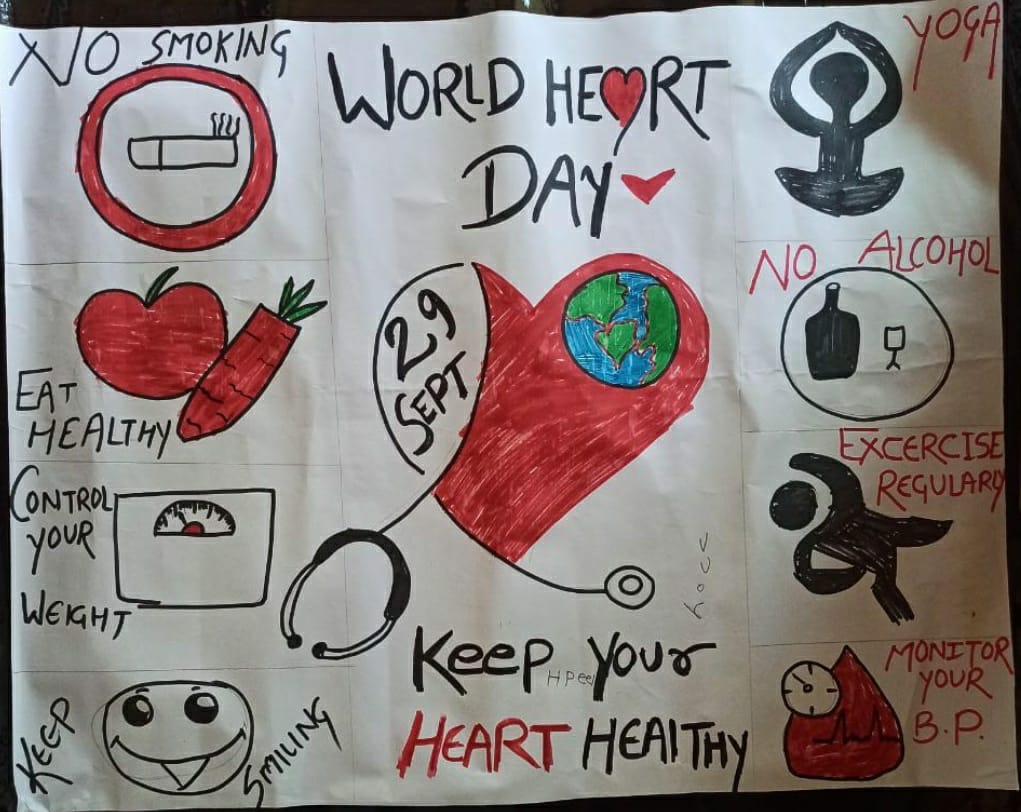 NO SMOKING
WORLD HEART
DAY
YOGA
EAT
HEALTHY
29
SEPT
NO ALCOHOL
CONTROL
YOUR
WEIGHT
EXCERCISE
REGULARLY
KEEP
SMILING
Keep Your
HEART HEAlTHY
MONITOR
YOUR
B.P.